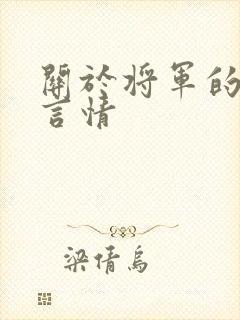 關於將軍的
言情
梁倩烏